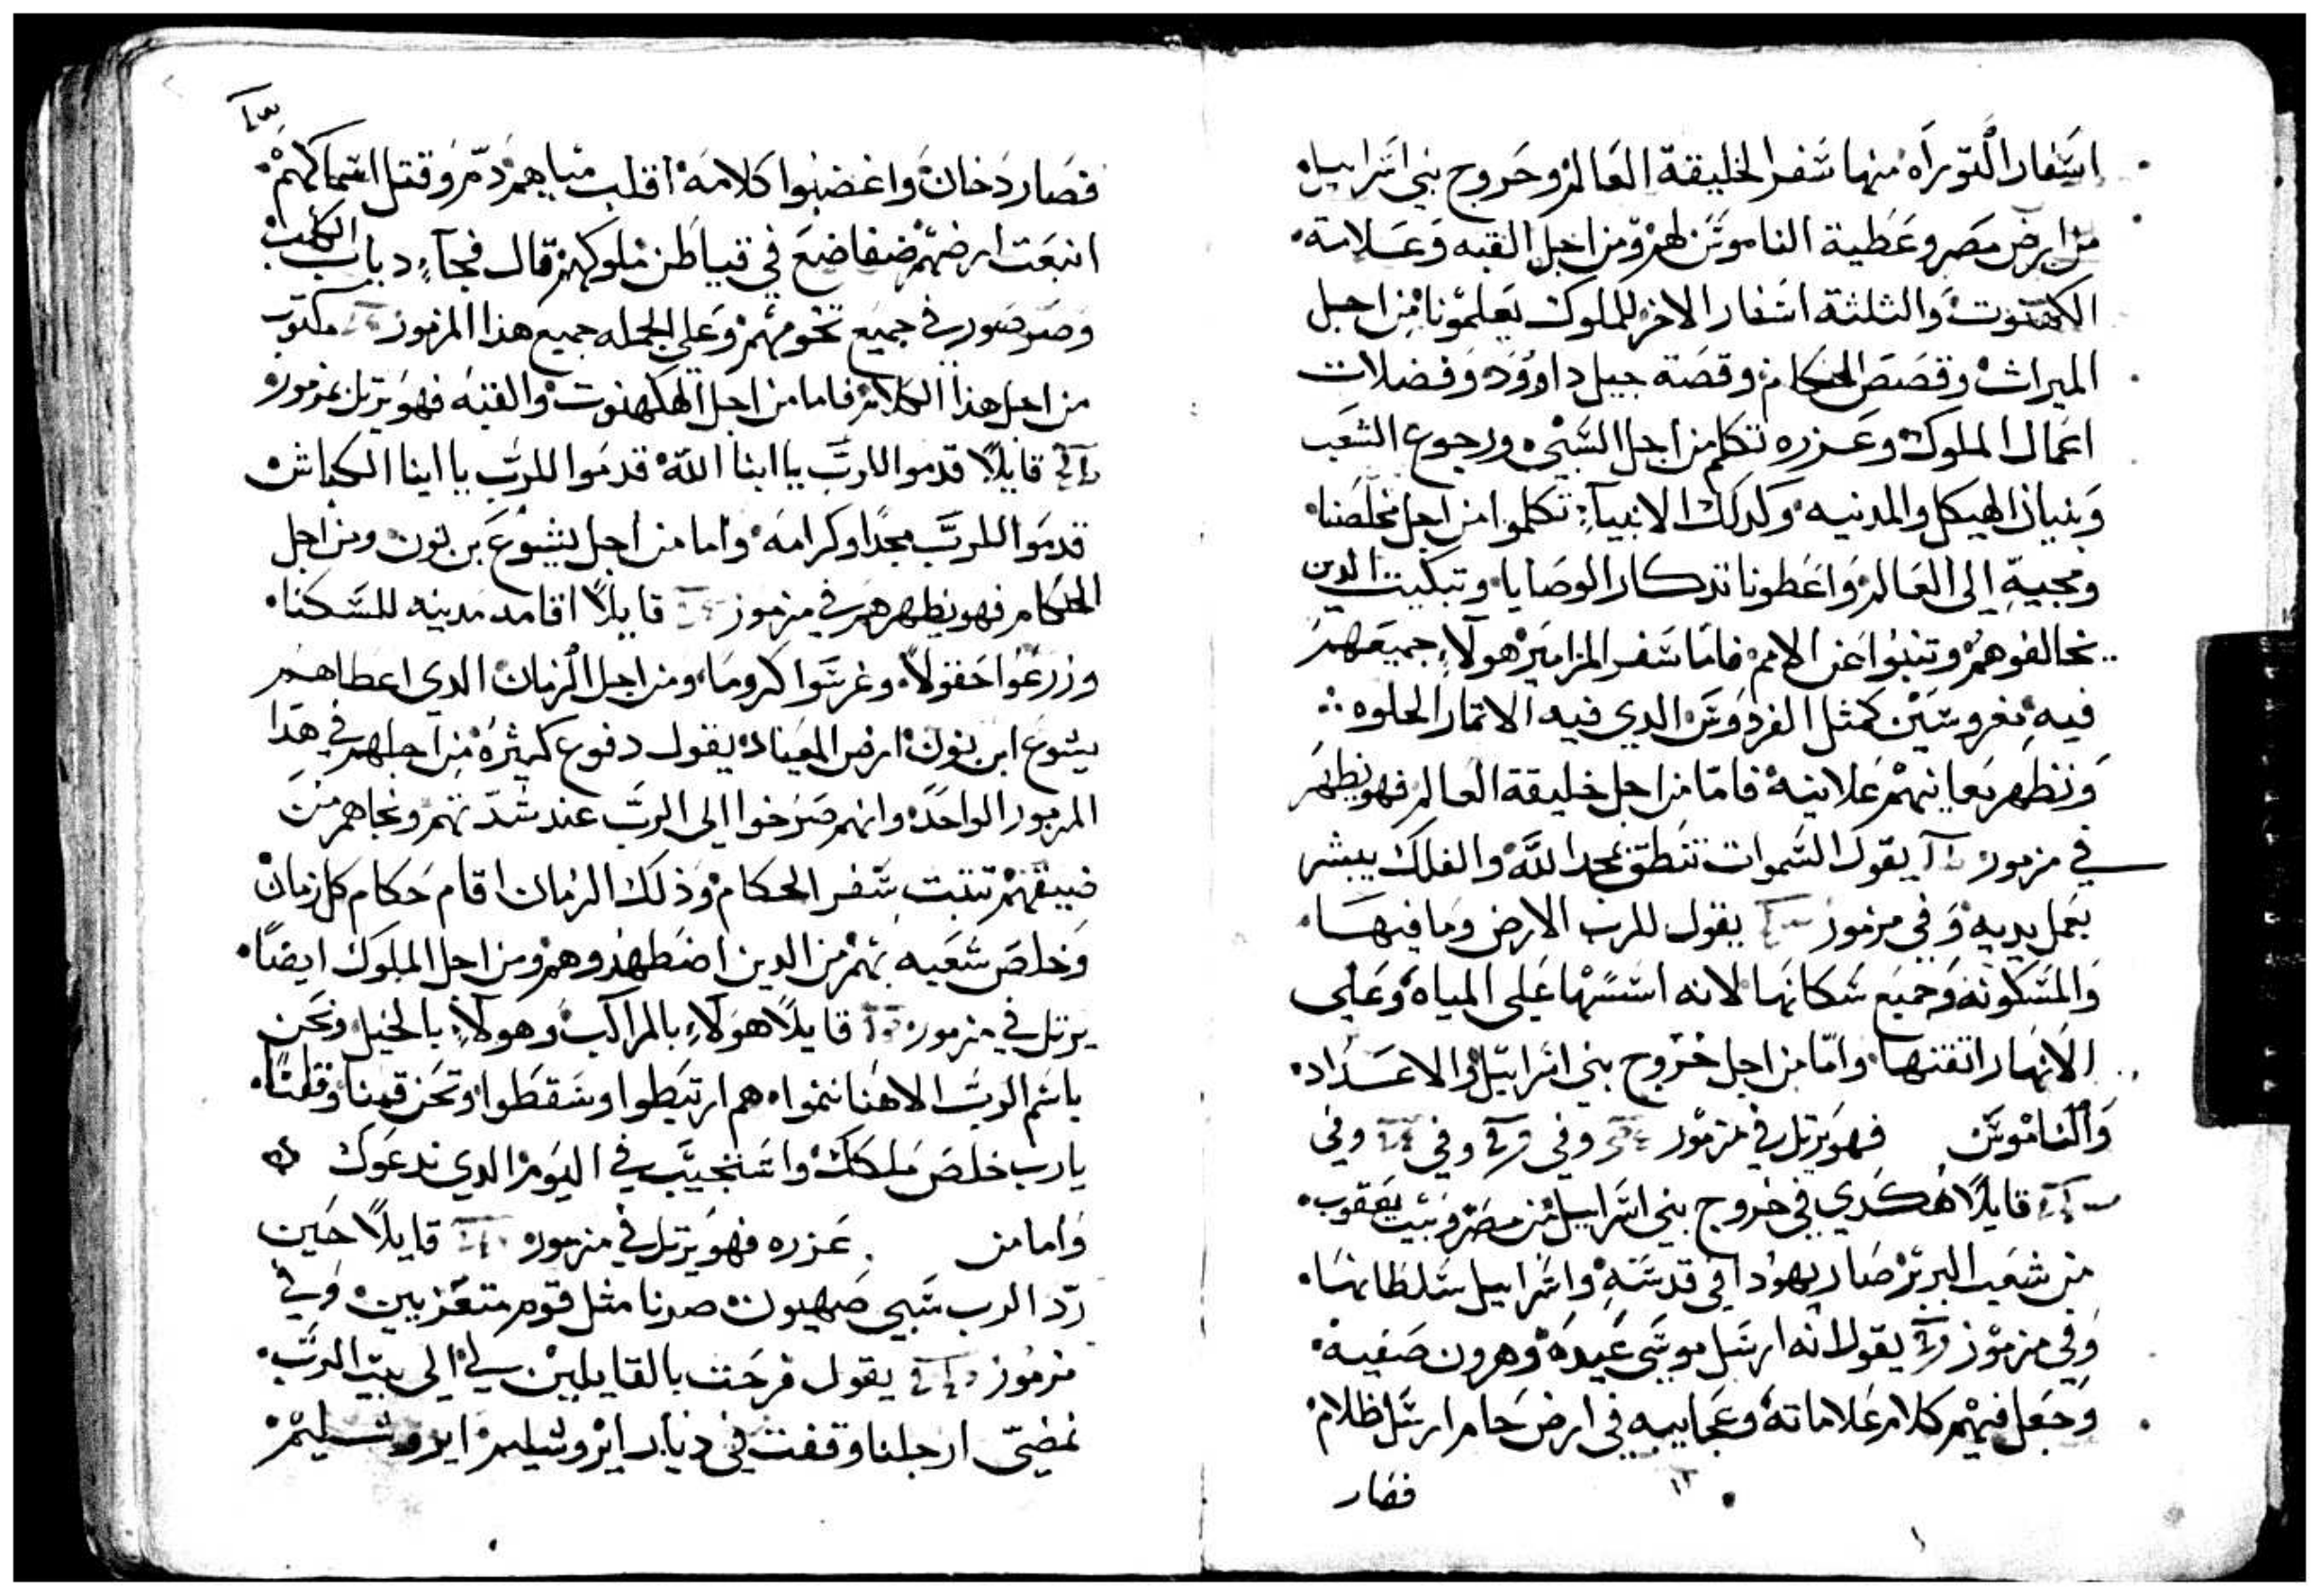 اسفار التوراه منها سفر الخليقة العالم وخروج بني اسراييل
من ارض مصر وعطية الناموس لهم ومن اجل القبه وعلامة
الكهنوت والثلثة اسفار الاخر للملوك يعلمونا من اجل
الميراث وقصص الحكام وقصة جبل داوود وفضلات
اعمال الملوك وعزره تكلم من اجل السبي ورجوع الشعب
وبنيان الهيكل والمدنيه وكدلك الانبيآء تكلموا من اجل مخلصنا
ومجيه الى العالم واعطونا تدكار الوصايا وتبكيت الدين
يخالفوهم وتنبوا عن الامم فاما سفر المزامير هولآء جميعهم
فيه مغروسين كمثل الفردوس الدي فيه الاتمار الحلوه
ونظهر معانيهم علانيه فاما من اجل خليقة العالم فهو يظهر
في مزمور يقول السموات تنطق بمجد الله والفلك يبشر
بعمل يديه وفي مزمور يقول للرب الارض وما فيها
والمسكونه وجميع سكانها لانه اسسها على المياه وعلى
الانهار اتقنها واما من اجل خروج بني اسراييل والاعداد
والناموس فهو يرتل في مزمور وفي وفي وفي
قايلا هكدي في خروج بني اسراييل من مصر وبيت يعقوب
من شعب البربر صار يهودا في قدسه واسراييل سلطانها
وفي مزمور يقول انه ارسل موسى عبده وهرون صفيه
وجعل فيهم كلام علاماته وعجايبه في ارض حام ارسل ظلام
فصار
فصار دخان واغضبوا كلامه اقلب مياهم دم وقتل اسماكهم
انبعت ارضهم ضفاضع في قياطن ملوكهم قال فجآء دباب الكلب
وصوصور في جميع تخومهم وعلى الجمله جميع هذا المزمور مكتوب
من اجل هذا الكلام فاما من اجل الكهنوت والقبه فهو يرتل بمزمور
قايلا قدموا للرب يا ابنا الله قدموا للرب يا ابنا الكباش
قدموا للرب مجدا وكرامه واما من اجل يشوع بن نون ومن اجل
الحكام فهو يظهرهم في مزمور قايلا اقامد مدينه للسكنا
وزرعوا حقولا وغرسوا كروما ومن اجل الزمان الدي اعطاهم
يشوع ابن نون ارض الميعاد يقول دفوع كثيره من اجلهم في هدا
المزمور الواحد وانهم صرخوا الى الرب عند شدتهم ونجاهم من
ضيقهم تتبت سفر الحكام وذلك الزمان اقام حكام كل زمان
وخلص شعبه بهم من الدين اضطهدوهم ومن اجل الملوك ايضا
يرتل في مزمور قايلا هولآء بالمراكب وهولآء بالخيل ونحن
باسم الرب الاهنا ننموا هم ارتبطوا وسقطوا ونحن قمنا وقلنا
يارب خلص ملكك واستجيب في اليوم الدي ندعوك
واما من عزره فهو يرتل في مزمور قايلا حين
رد الرب سبي صهيون صرنا مثل قوم متعزيين وفي
مزمور يقول فرحت بالقايلين لي الى بيت الرب
نمضي ارجلنا وقفت في ديار ايروشليم ايروشليم